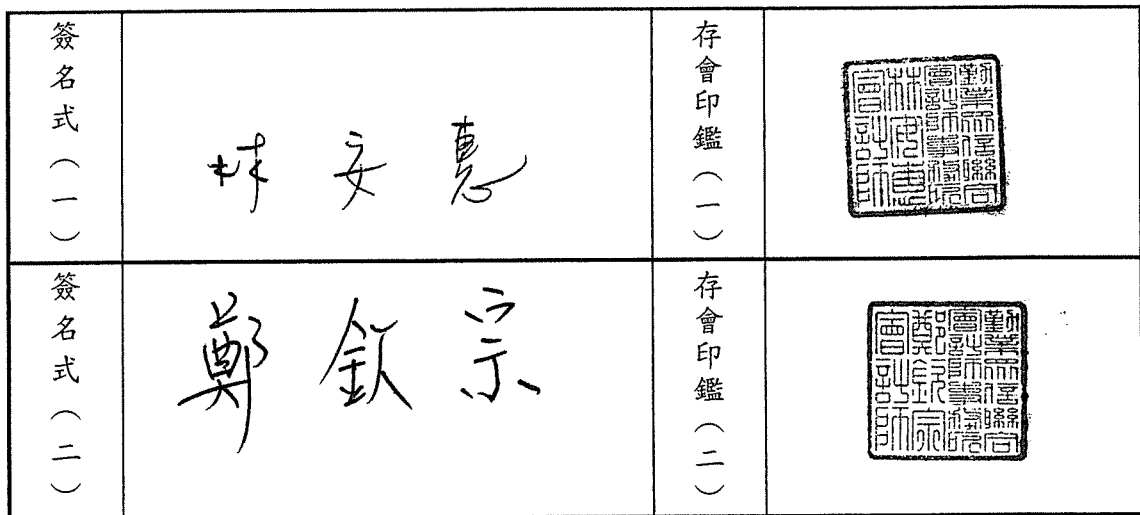 簽名式(一)
林安惠
存會印鑑(一)
勤業眾信聯合
會計師事務所
林安惠
會計師
簽名式(二)
鄭欽宗
存會印鑑(二)
勤業眾信聯合
會計師事務所
鄭欽宗
會計師